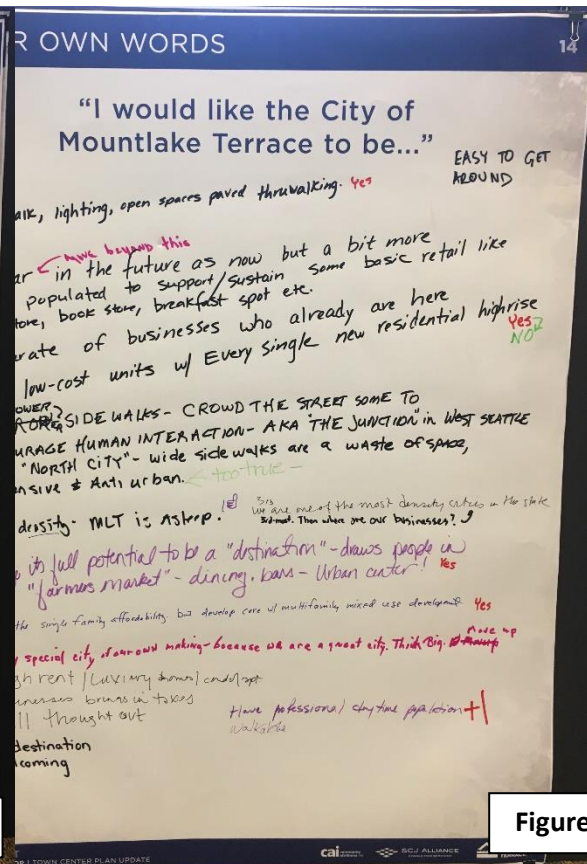 R OWN WORDS
14
“I would like the City of
Mountlake Terrace to be...”
EASY TO GET
AROUND
alk, lighting, open spaces paved thruwalking. Yes
move beyond this
ar in the future as now but a bit more
populated to support/sustain some basic retail like
tore, book store, breakfast spot etc.
rate of businesses who already are here
low-cost units w/ Every single new residential highrise
Yes
NO
SIDEWALKS - CROWD THE STREET SOME TO
URAGE HUMAN INTERACTION - AKA "THE JUNCTION" in WEST SEATTLE
"NORTH CITY" - wide sidewalks are a waste of space,
nsive & Anti urban. too true -
density - MLT is Asleep!
We are one of the most density cities in the state
Then where are our businesses?
its full potential to be a "distination" - draws people in
"farmers market" - dining, bars - Urban center! Yes
the single family affordability but develop core w/ multifamily mixed use development Yes
special city of our own making - because we are a great city. Think Big. Move up
gh rent / Luxury homes / condo/apt
inesses brings in taxes
ll thought out
Have professional daytime population +1
walkable
destination
lcoming
Figure
OR | TOWN CENTER PLAN UPDATE
cai
SCJ ALLIANCE